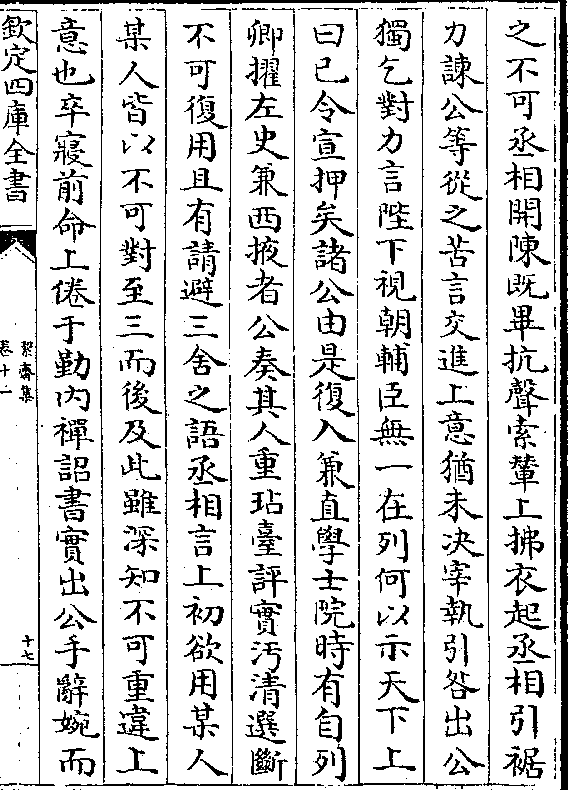 之不可丞相開陳既畢抗聲索輦上拂衣起丞相引裾
力諫公等從之苦言交進上意猶未决宰執引咎出公
獨乞對力言陛下視朝輔臣無一在列何以示天下上
曰已令宣押矣諸公由是復入兼直學士院時有自列
卿擢左史兼西掖者公奏其人重玷臺評實汚清選斷
不可復用且有請避三舍之語丞相言上初欲用某人
某人皆以不可對至三而後及此雖深知不可重違上
意也卒寢前命上倦于勤内禪詔書實出公手辭婉而
欽定四庫全書
絜齋集
卷十一
十七